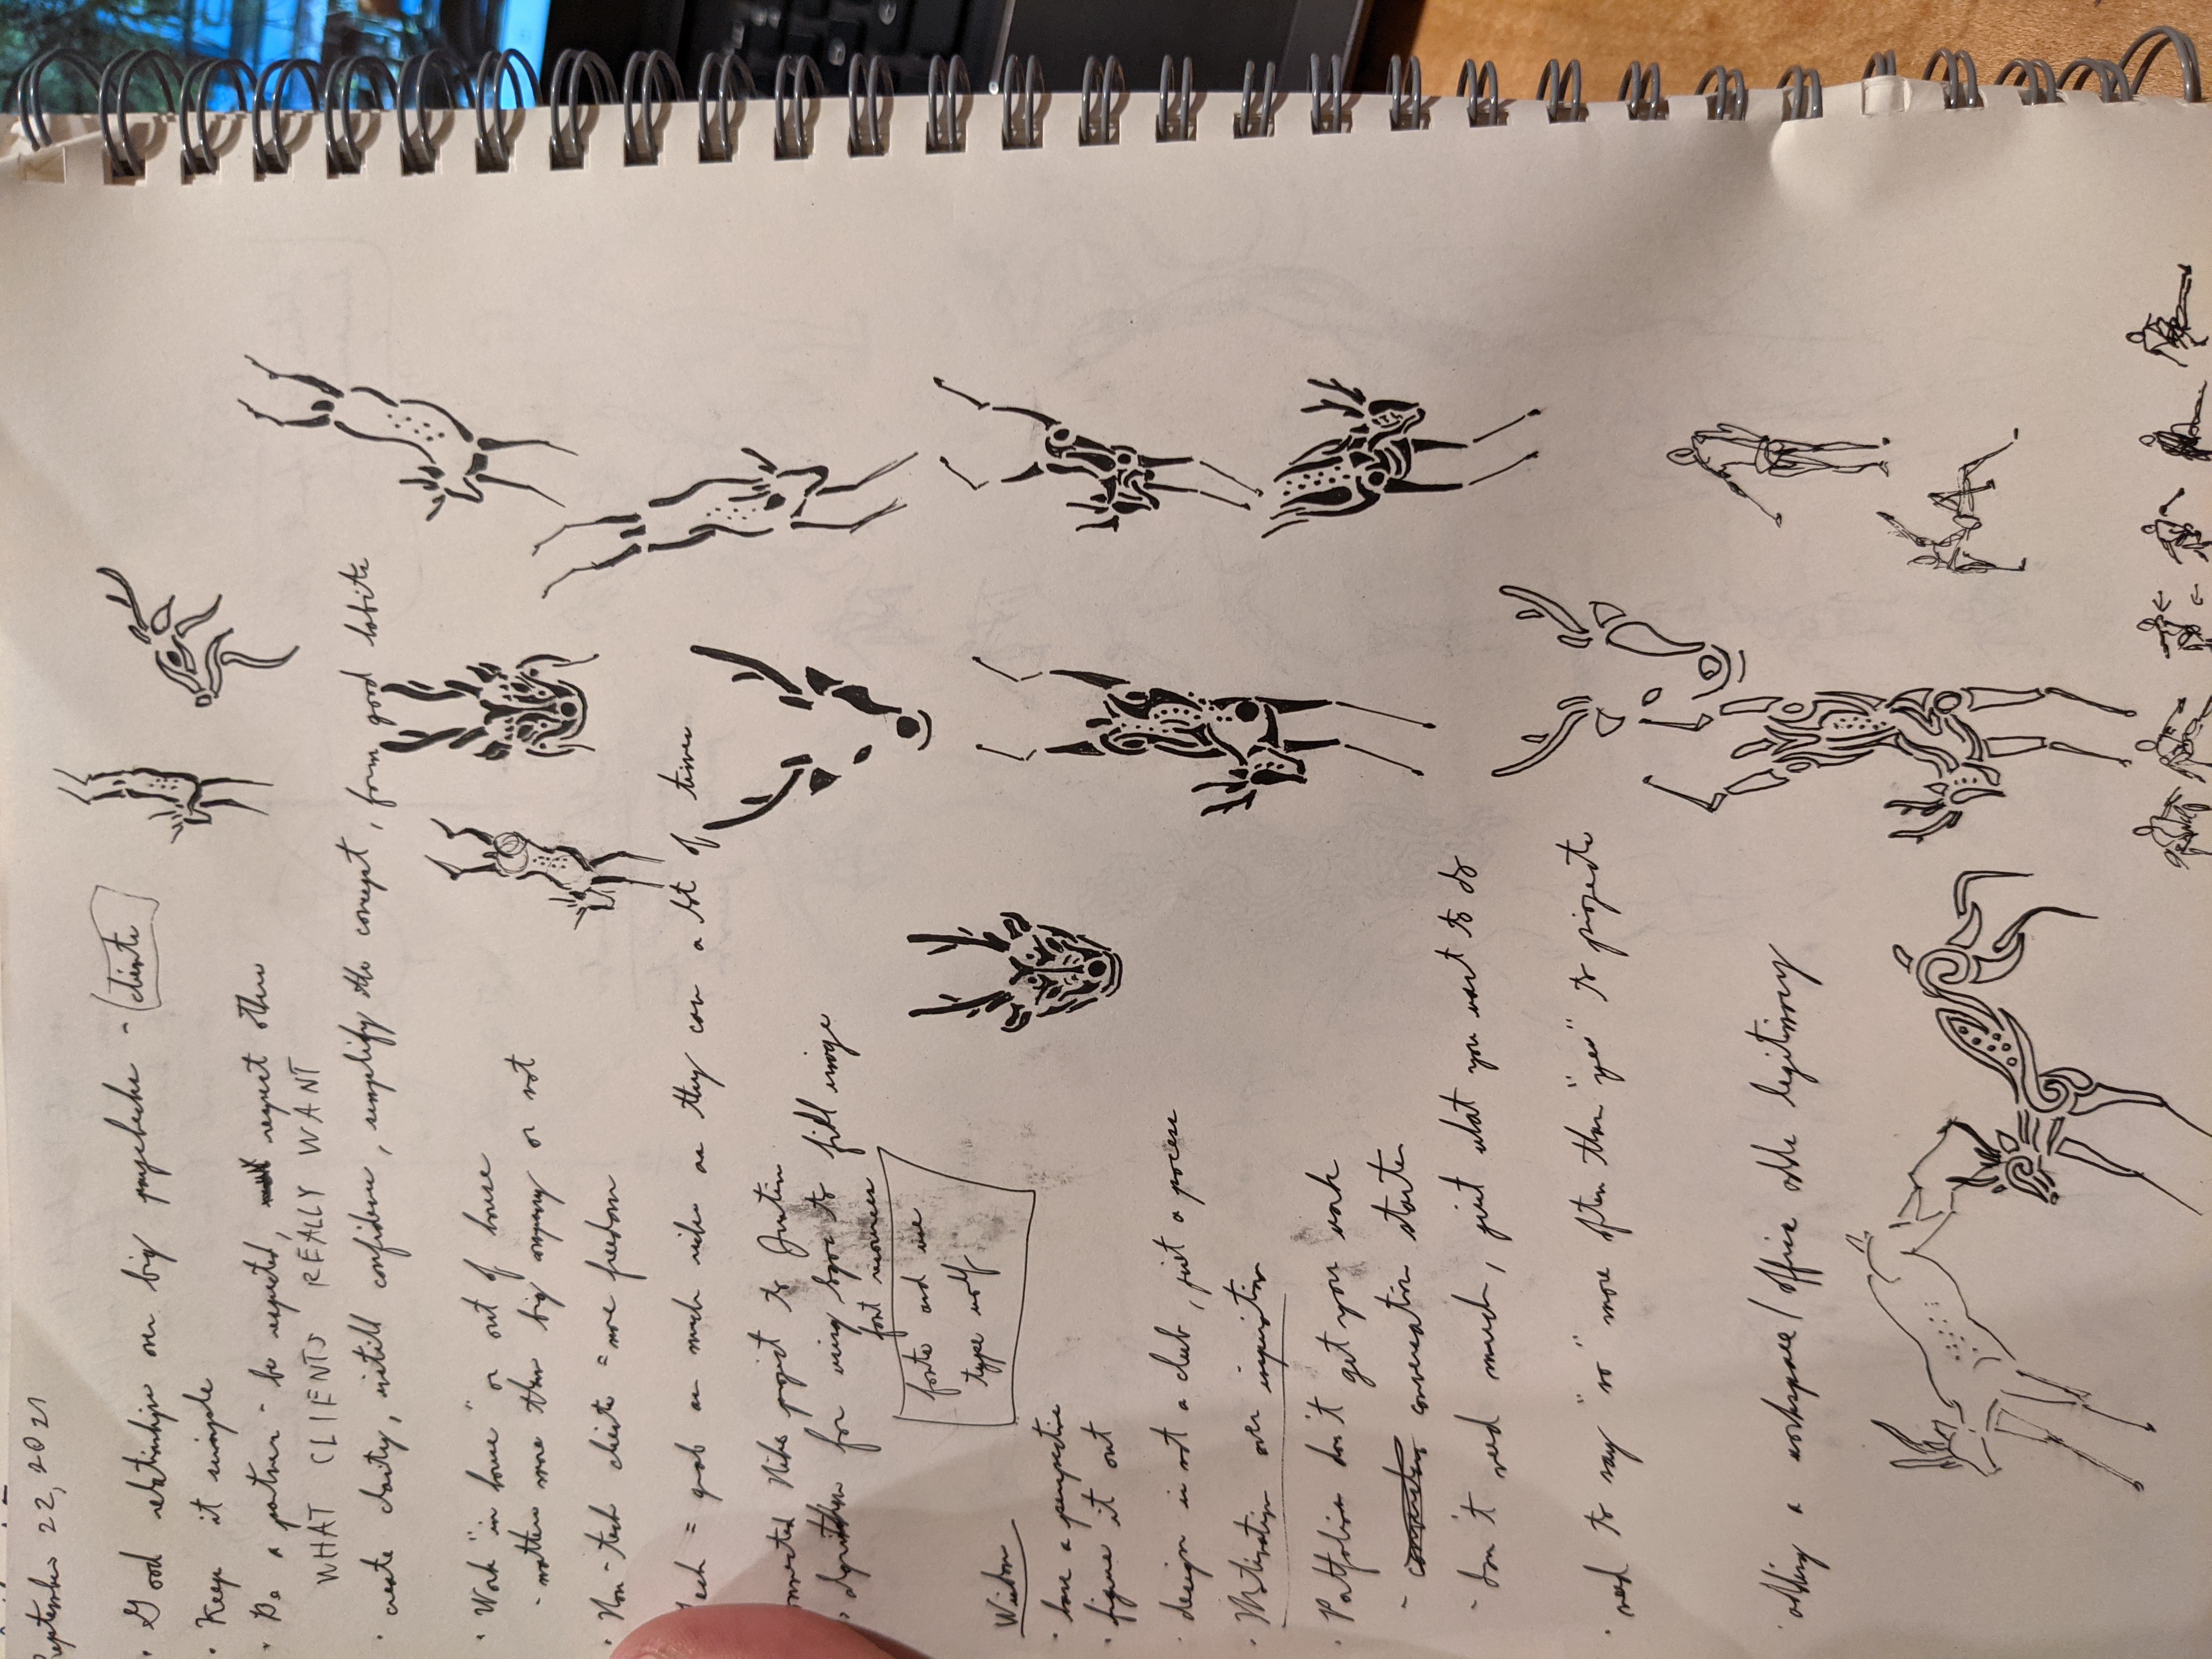 September 22, 2021
· Good relationships over big paychecks - clients
· Keep it simple
· Be a partner - be respected, respect others
WHAT CLIENTS REALLY WANT
· create clarity, instill confidence, simplify the concept, form good habits
· Work "in house" or out of house
- matters more than big company or not
· Non-tech clients = more freedom
Tech = grab as much as they can a lot of times
connected Nike project to Justin
· algorithm for using to fill image
font resources
fonts and use
type wolf
Wisdom
· have a perspective
· figure it out
· design is not a club, just a process
· Motivation over inspiration
· Portfolios don't get you work
- conversation starter
- don't need much, just what you want to do
· need to say "no" more often than "yes" to projects
· adding a workspace/office adds legitimacy